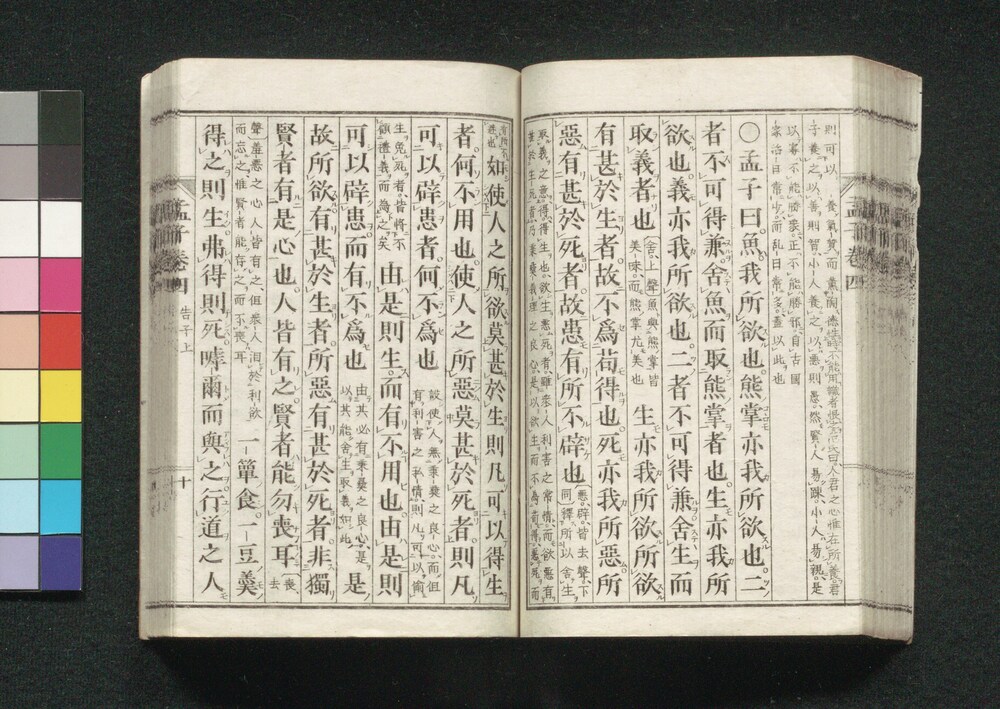 孟子卷四
則可以養氣質而薰陶德性時不能用識者恨之范氏曰人君之心惟在所養君
子養之以善則智小人養之以惡則愚然賢人易踈小人易親是
以寡不能勝衆正不能勝邪自古國
家治日常少而亂日常多蓋以此也
〇孟子曰魚我所欲也熊掌亦我所欲也二
者不可得兼舍魚而取熊掌者也生亦我所
欲也義亦我所欲也二者不可得兼舍生而
取義者也舍上聲魚與熊掌皆美味而熊掌尤美也生亦我所欲所欲
有甚於生者故不爲苟得也死亦我所惡所
惡有甚於死者故患有所不辟也惡辟皆去聲下同釋所以舍生
取義之意得得生也欲生惡死者雖衆人利害之常情而欲惡有
甚於生死者乃秉彝義理之良心是以欲生而不爲苟得惡死而
有所不避也如使人之所欲莫甚於生則凡可以得生
者何不用也使人之所惡莫甚於死者則凡
可以辟患者何不爲也設使人無秉彝之良心而但有利害之私情則凡可以偷
生免死者皆將不顧禮義而爲之矣由是則生而有不用也由是則
可以辟患而有不爲也由其必有秉彝之良心是以其能舍生取義如此是
故所欲有甚於生者所惡有甚於死者非獨
賢者有是心也人皆有之賢者能勿喪耳喪去
聲羞惡之心人皆有之但衆人汨於利欲而忘之惟賢者能存之而不喪耳一簞食一豆羹
得之則生弗得則死嘑爾而與之行道之人
孟子卷四 告子上 十